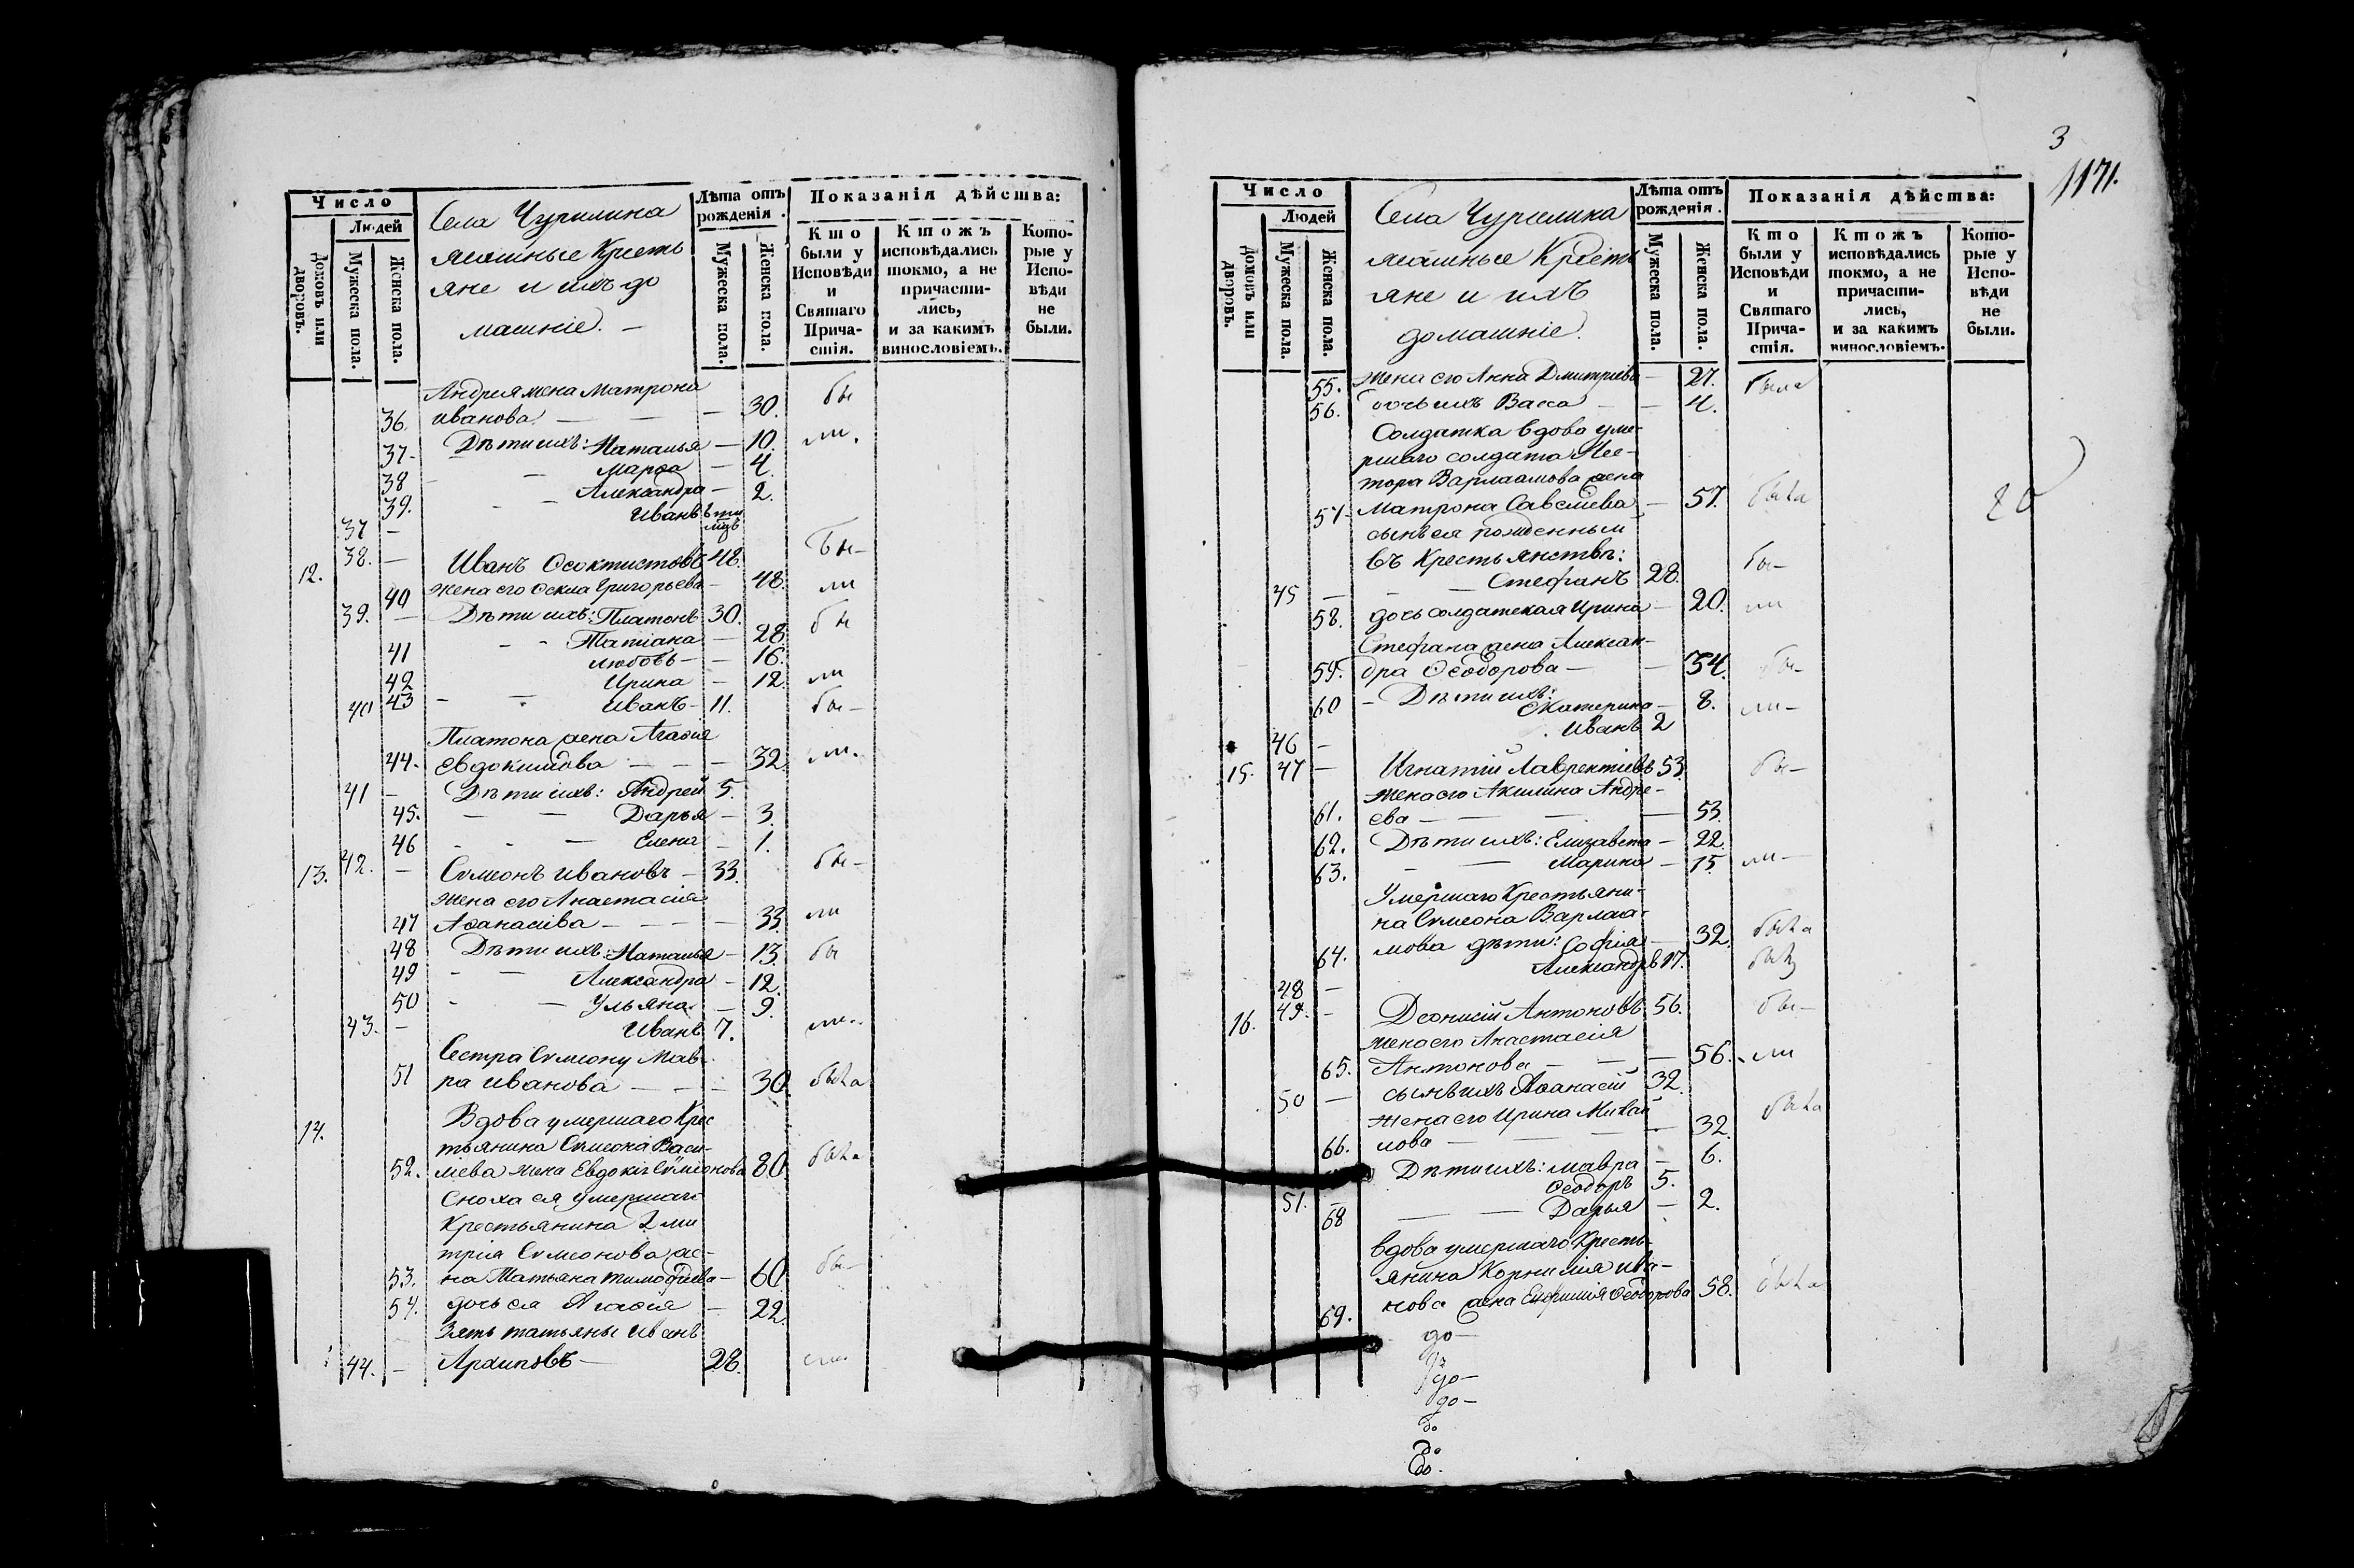 Число
Людей
домовъ или дворовъ.
Мужеска пола.
Женска пола.
Села Чурилина
ясашные Кресть
яне и ихъ до
машніе. —
Лѣта отъ рожденія.
Мужеска пола.
Женска пола.
Показанія дѣйства:
Кто были у Исповѣди и Святаго Прича- стія.
Ктожъ исповѣдались токмо, а не причасти- лись, и за какимъ винословіемъ.
Кото- рые у Испо- вѣди не были.
Андрея жена Матрона
36. иванова — — — 30. бы
37. Дѣти ихъ: Наталья — 10. ли.
38 — Марѳа — 4.
39. - Александра — 2.
37 — Иванъ
12. 38. — Иванъ Ѳеоктистовъ 48. бы-
40 жена его Ѳекла Григорьева — 48. ли
39. — Дѣти ихъ: Платонъ 30. бы
41 - - Татіана — 28.
42 любовь — — 16.
43 Ирина — 12. ли
40 — Иванъ — 11. бы-
Платона жена Агаѳія
44. Евдокимова — — — 32. ли.
41 — Дѣти ихъ: Андрей 5.
45. — — Дарья — 3.
46 - - — Елена — 1.
13. 42. — Сѵмеонъ ивановъ — 33. бы-
жена его Анастасія
47 Аѳанасіева — — — — 33. ли
48 Дѣти ихъ: Наталья — 13. бы
49 - — Александра — 12.
50 - — Ульяна — 9.
43. — Иванъ 7. ли..
Сестра Сѵмеону Мав-
51 ра иванова — — — 30. была
14. Вдова умершаго Крес
тьянина Сѵмеона Васи-
52. ліева жена Евдокія Сѵмеонова 80. была
Сноха ея умершаго
Крестьянина Дми
трія Сѵмеонова же-
53. на Татьяна тимоѳіева — 60. бы-
54. дочь ея Агаѳія — 22.
Зять татьяны Иванъ
44. — Архиповъ — 28. ли.
3
1171.
Число
Людей
домовъ или дворовъ.
Мужеска пола.
Женска пола.
Села Чурилина
ясашные Кресть
яне и ихъ
домашніе.
Лѣта отъ рожденія.
Мужеска пола.
Женска пола.
Показанія дѣйства:
Кто были у Исповѣди и Святаго Прича- стія.
Ктожъ исповѣдались токмо, а не причасти- лись, и за какимъ винословіемъ.
Кото- рые у Испо- вѣди не были.
55. жена его Анна Дмитріева — 27. была
56. дочь ихъ Васса — — 4.
Солдатка вдова уме-
ршаго солдата Нес-
тора Варлаамова жена
57. Матрона Савеліева — 57. была
сынъ ея рожденный
въ Крестьянствѣ:
45 — — — Стефанъ 28. бы-
58. дочь солдатская Ирина — 20. ли
Стефана жена Алексан-
59. дра Ѳеодорова — — 34. бы-
60 — Дѣти ихъ: Екатерина — 8. ли-
46 — Иванъ 2
15. 47 — Игнатій Лаврентіевъ 53. бы-
жена его Акилина Андре-
61. ева — — — — 53.
62. Дѣти ихъ: Елизавета — 22.
63. - — Марина — 15. ли-
Умершаго Крестьяни-
на Сѵмеона Варлаа-
64. мова дѣти: Софія — 32. была
48 — Александръ 17. былъ
16. 49. — Деонисій Антоновъ 56. бы-
жена его Анастасія
65. Антонова — — — 56. ли
50 — сынъ ихъ Аѳанасій 32.
жена его Ирина Михай была
66. лова — — — — 32.
Дѣти ихъ: мавра — 6.
51. — Ѳеодоръ 5.
68 — — Дарья — 2.
вдова умершаго Кресть-
янина Корнилія ива-
69. нова жена Ефимія Ѳеодорова 58. была
до-
до-
до-
до
до
до.